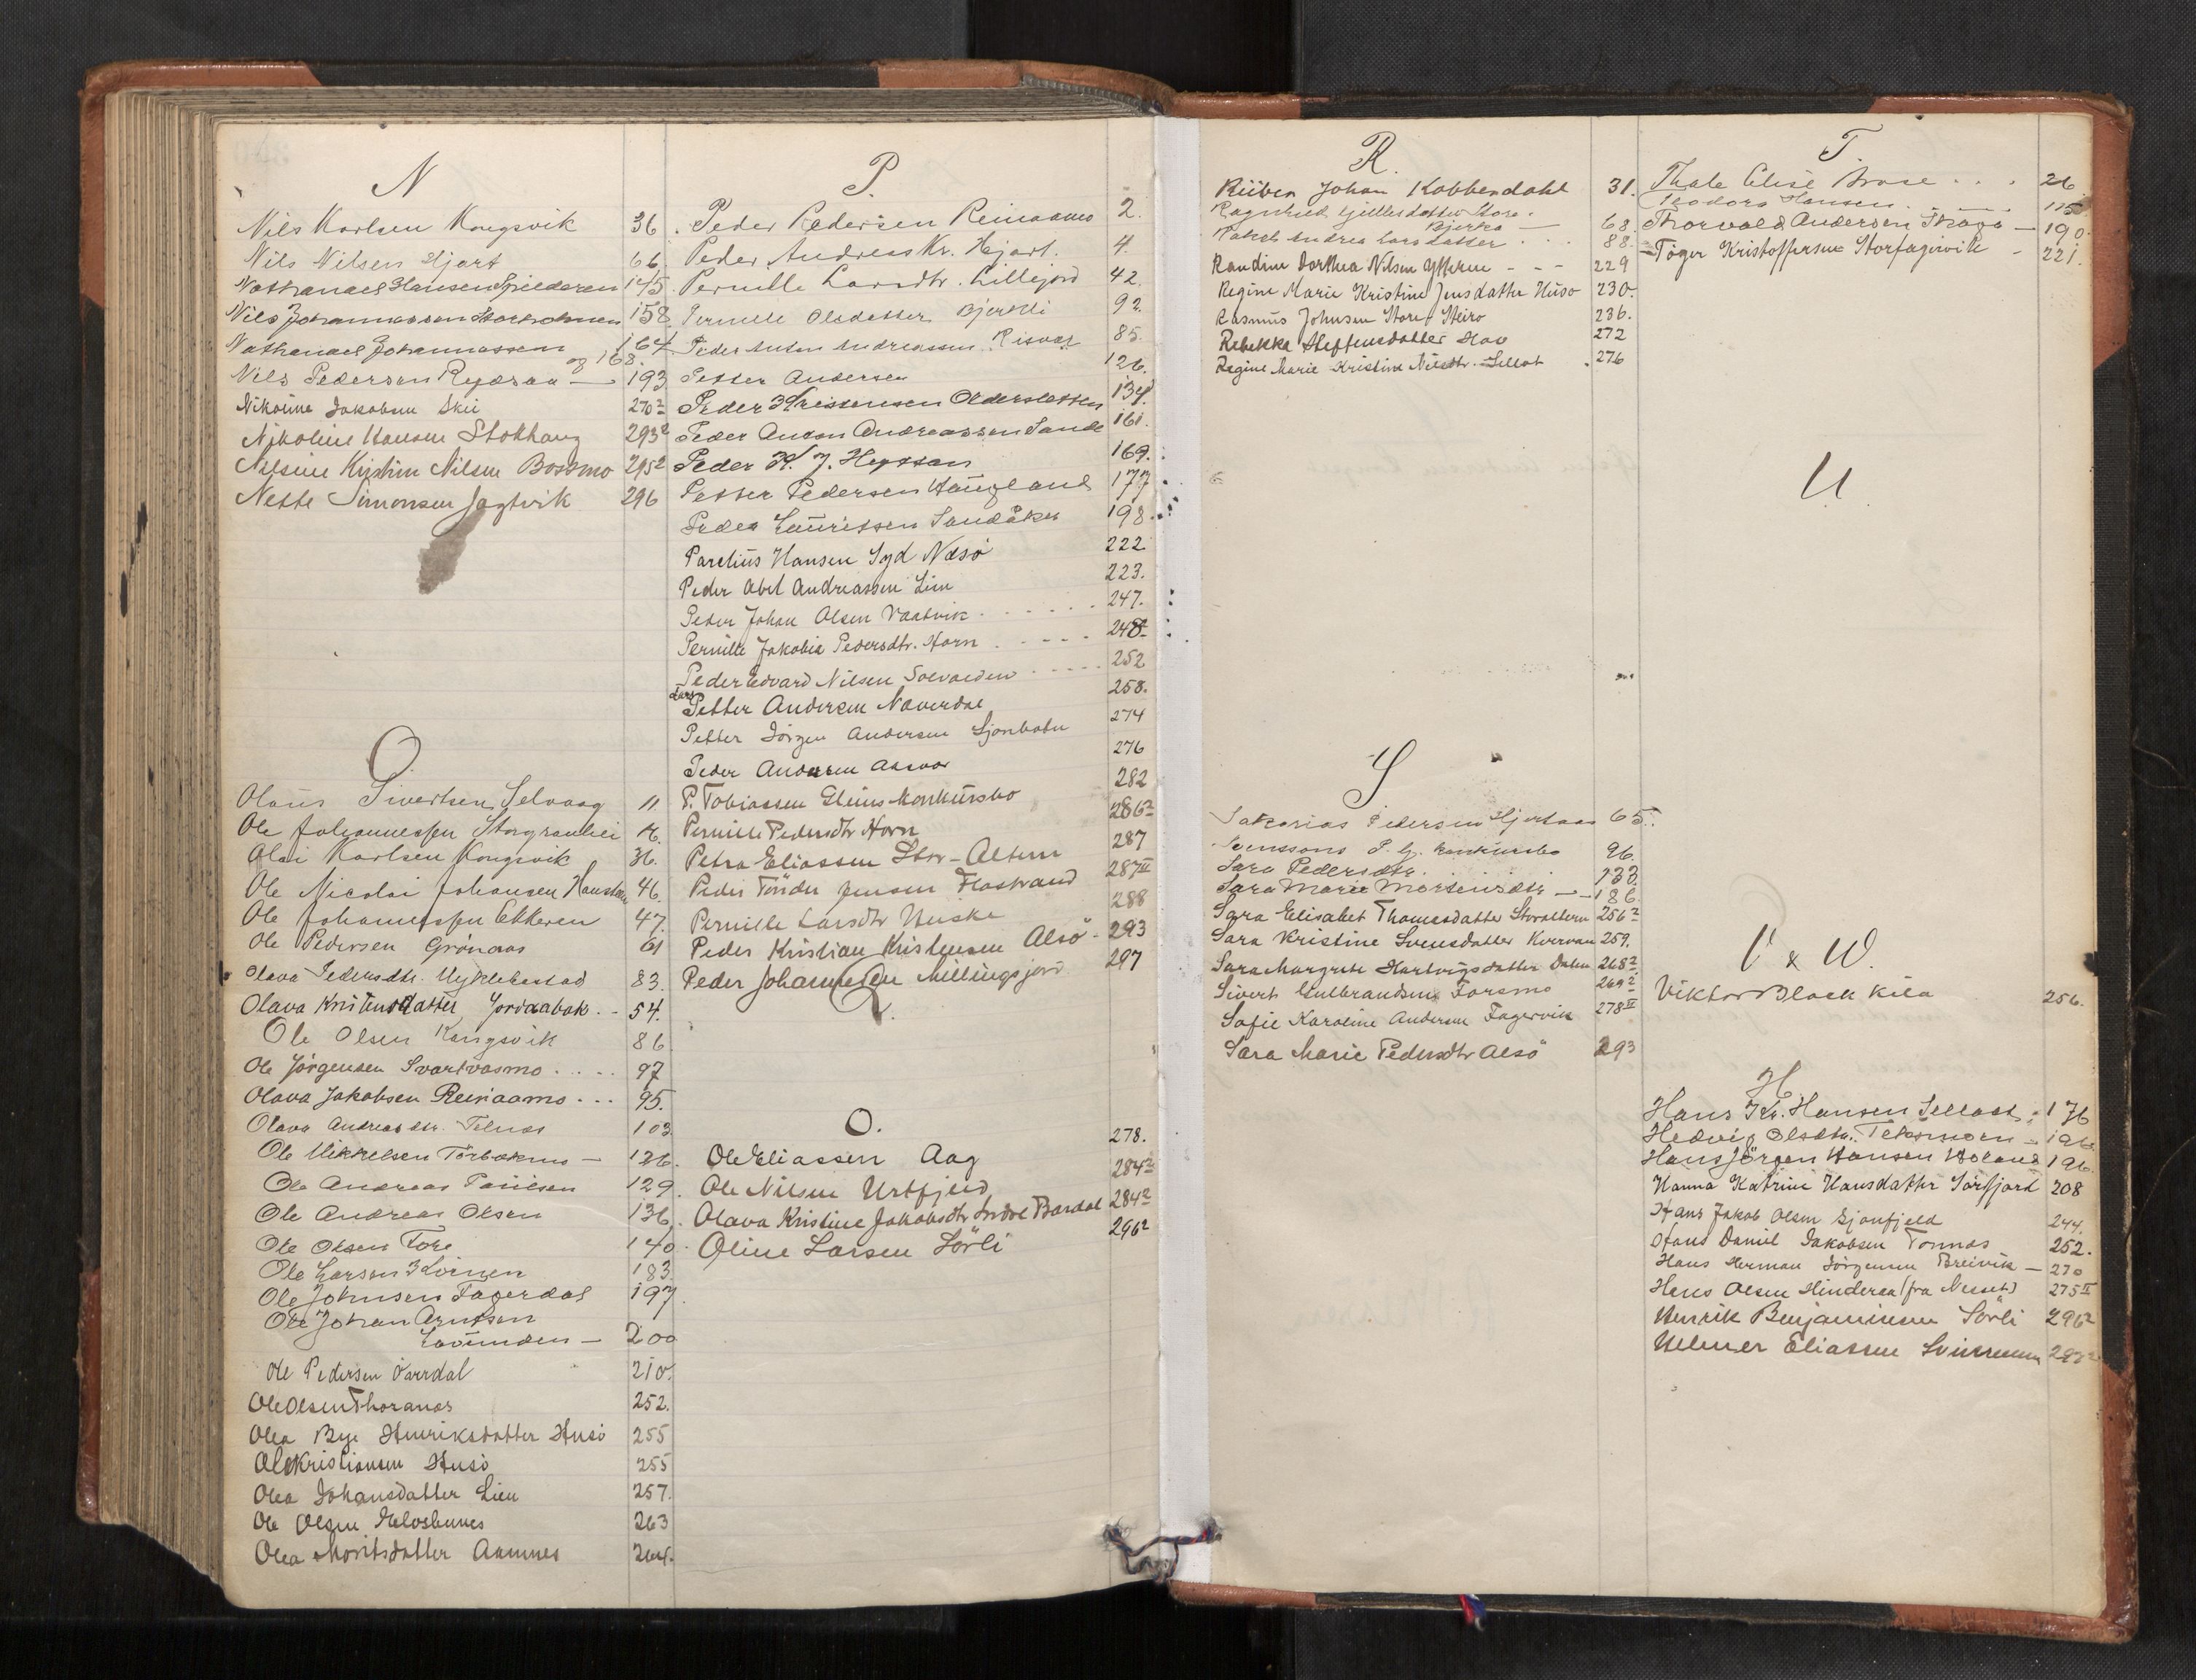 N
Nils Karlsen Kongsvik 36.
Nils Nilsen Hjart 66.
Nathanael Hansen 145.
Nils Johannessen Storholmen 158.
Nathanael Johannessen 164
og 168.
Nils Pedersen Rydsaa — 193
Nikoline Jakobsen 270²
Nikoline Hansen Stokhaug 293²
Nilsine Kristine Nilsen Bossmo 295²
Nette Simonsen Jagtvik 296
O
Olaus Sivertsen Selvaag 11
Ole Johannessen 16.
Olai Karlsen Kongsvik 36.
Ole Nicolai Johansen 46.
Ole Johannessen Ekkeren 47.
Ole Pedersen Grönaas 61
Olava Pedersdtr. 83.
Olava Kristensdatter Jordaabak . - 54.
Ole Olsen Kongsvik 86
Ole Jörgensen Svartvasmo . . . . 97
Olava Jakobsen Reinaamo . . . 95.
Olava Andreasdtr. 103
Ole Mikkelsen — 126.
Ole Andreas 129.
Ole Andreas Olsen 136.
Ole Olsen Fore 140.
Ole Larsen 183.
Ole Johnsen Fagerdal 197.
Ole Johan Arntsen
Lovunden — 200
Ole Pedersen 210.
Ole Olsen Thoranes 252.
Olea Bye Henriksdatter Husö 255
Ole Kristiansen Husö 255
Olea Johansdatter Lien 257.
Ole Olsen 263
Olea Moritsdatter Aamnes 264.
P.
Peder Pedersen Reinaamo 2.
Peder Andreas Kr. Hjart. 4.
Pernille Larsdtr. Lillefjord 42.
Pernille Olsdatter Bjerkli 92.
Peder Anton Andreassen Risvær 85.
Petter Andersen 126.
Peder Kristensen Oldersletten 134.
Peder Anton Andreassen Sande 161.
Peder K. J. 169.
Petter Pedersen Haugland 177.
Peder Lauritsen Sandåker 198.
Parelius Hansen Syd Næsö 222
Peder Abel Andreassen Lien 223.
Peder Johan Olsen Vaatvik . . . . . 247.
Pernille Jakobia Pedersdtr. Horn . . . . 248²
Peder Edvard Nilsen Solvarden . . . . . 252
Lars
Petter Andersen Naverdal 258.
Petter Jörgen Andersen Sjonbotn 274
Peder Andersen Aasvær 276
P. Tobiassen Elenes Konkursbo 282
Pernille Pedersdtr Horn 286²
Petra Eliassen Stor-Altern 287
Peder Tönder Jensen Flostrand 287II
Pernille Larsdtr 288
Peder Kristian Kristensen Alsö - 293
Peder Johannesen Mellingsjord 297
Q.
O.
Ole Eliassen Aag 278.
Ole Nilsen Urtfjeld 284²
Olava Kristine Jakobsdtr Indre Bardal 284²
Oline Larsen Sörli 296²
R.
Rüben Johan Kobbendahl 31.
Ragnhild Kjeldsdatter Store.
Bjerka — 68.
Rakel Andrea Larsdatter . . . 88.
Randine Dorthea Nilsen Ytteren - - - 229
Regine Marie Kristine Jensdatter Husö 230.
Rasmus Johnsen Store Steiro 236.
Rebekka Steffensdatter Hov 272
Regine Marie Kristine Nilsdtr. Selfot . 276
S
Sakarias Pedersen 65.
Svenssons P. G. Konkursbo 96.
Sara Pedersdtr. 133.
Sara Marie Mortensdtr — 186.
Sara Elisabet Thomasdatter Storaltern 256²
Sara Kristine Svensdatter Kvervan 259.
Sara Margrete Hartvigsdatter Dalen 268²
Sivert Gulbrandsen Forsmo 269²
Sofie Karoline Andersen Fagervik 278II
Sara Marie Pedersdtr Alsö 293
T
Thale Elise . . . 26
Teodora Hansen . . 115
Thorvald Andersen — 190.
Töger Kristoffersen Storfagervik - 221.
U.
V & W.
Viktor Block Kila 256.
H
Hans Kr. Hansen Selfoth . 176
Hedvig Olsdtr. — 196.
Hans Jörgen Hansen 196.
Hanna Katrine Hansdatter Sörfjord 208
Hans Jakob Olsen Sjonfjeld 244.
Hans Daniel Jakobsen Tonnes 252.
Hans Herman Jörgensen Breivik — 270
Hans Olsen Hinderaa (fra Nesset) 275II
Henrik Benjaminsen Sörli 296²
Helmer Eliassen